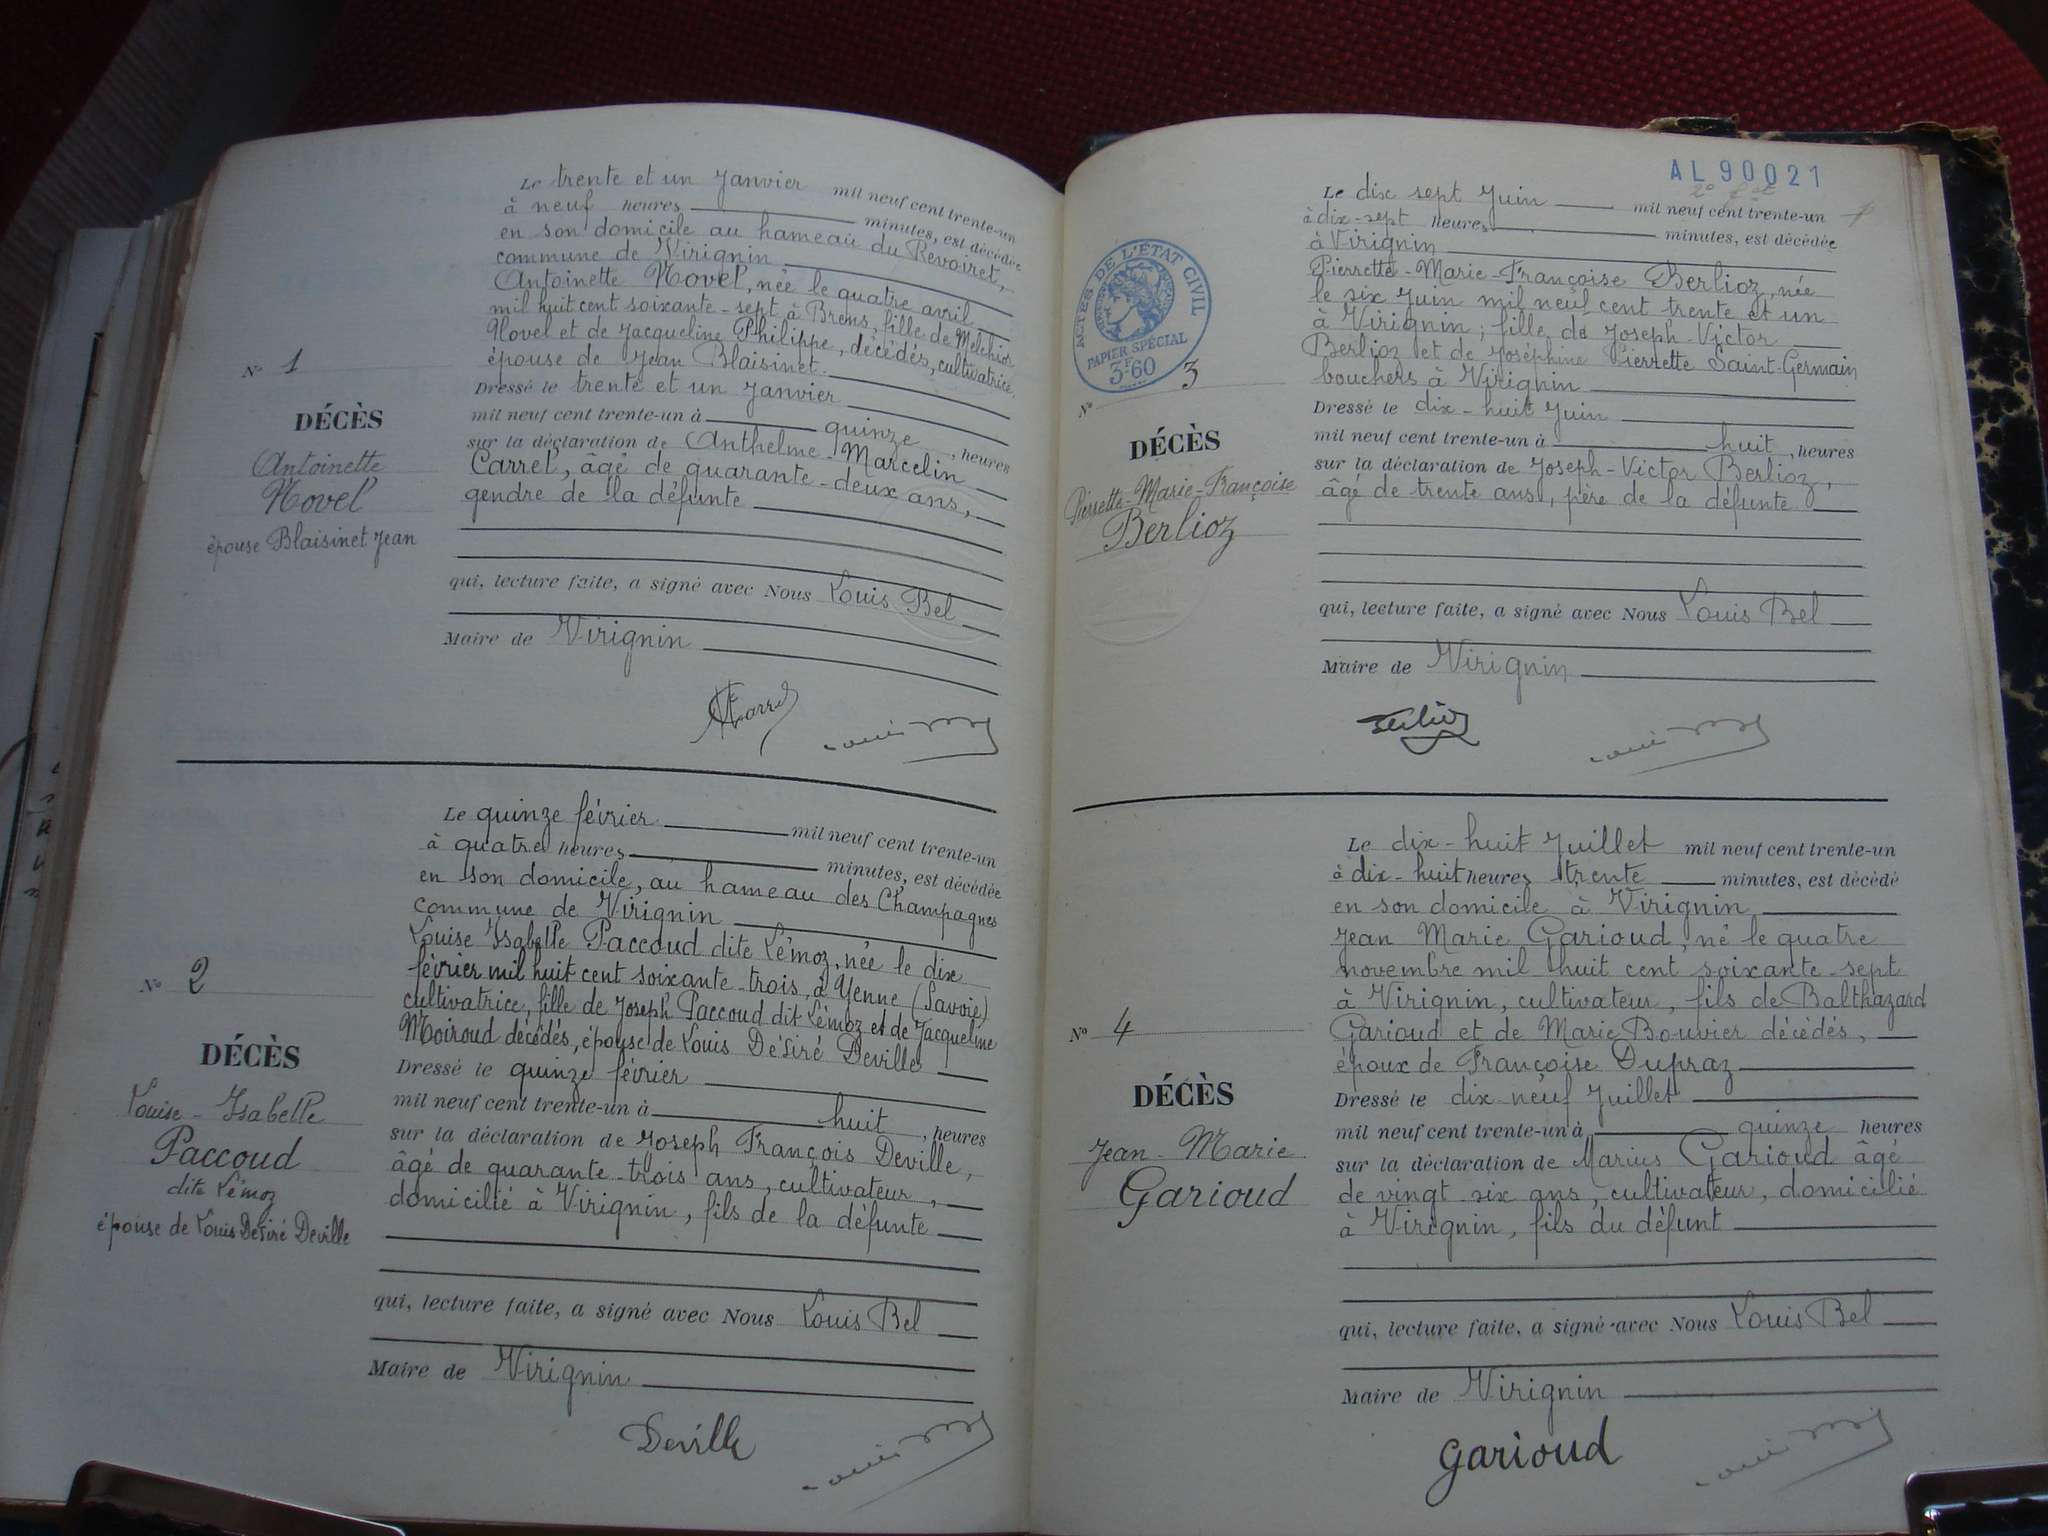 Le trente et un Janvier mil neuf cent trente-un
à neuf heures minutes, est décédée
en son domicile au hameau du Revoiret,
commune de Virignin
Antoinette Novel, née le quatre avril
mil huit cent soixante-sept à Brens, fille de Melchior
Novel et de Jacqueline Philippe, décédés, cultivatrice,
épouse de Jean Blaisinet.
Dressé le trente et un Janvier
mil neuf cent trente-un à quinze, heures
sur la déclaration de Anthelme-Marcelin
Carrel, âgé de quarante-deux ans,
gendre de la défunte
qui, lecture faite, a signé avec Nous Louis Bel
Maire de Virignin
N° 1
DÉCÈS
Antoinette
Novel
épouse Blaisinet Jean
Le quinze février mil neuf cent trente-un
à quatre heures minutes, est décédée
en son domicile, au hameau des Champagnes
commune de Virignin
Louise Isabelle Paccoud dite Lémoz, née le dix
février mil huit cent soixante-trois, à Yenne (Savoie)
cultivatrice, fille de Joseph Paccoud dit Lémoz et de Jacqueline
Moiroud décédés, épouse de Louis Désiré Deville
Dressé le quinze février
mil neuf cent trente-un à huit, heures
sur la déclaration de Joseph François Deville,
âgé de quarante-trois ans, cultivateur,
domicilié à Virignin, fils de la défunte
qui, lecture faite, a signé avec Nous Louis Bel
Maire de Virignin
Deville
N° 2
DÉCÈS
Louise-Isabelle
Paccoud
dite Lémoz
épouse de Louis Désiré Deville
AL90021
Le dix sept Juin mil neuf cent trente-un
à dix-sept heures minutes, est décédée
à Virignin
Pierrette-Marie-Françoise Berlioz, née
le six Juin mil neuf cent trente et un
à Virignin; fille de Joseph-Victor
Berlioz et de Joséphine Pierrette Saint-Germain
bouchers à Virignin
Dressé le dix-huit Juin
mil neuf cent trente-un à huit, heures
sur la déclaration de Joseph-Victor Berlioz,
âgé de trente ans, père de la défunte
qui, lecture faite, a signé avec Nous Louis Bel
Maire de Virignin
Berlioz
ACTES DE L'ÉTAT CIVIL
PAPIER SPÉCIAL
3F60
N° 3
DÉCÈS
Pierrette-Marie-Françoise
Berlioz
Le dix-huit Juillet mil neuf cent trente-un
à dix-huit heures trente minutes, est décédé
en son domicile à Virignin
Jean Marie Garioud, né le quatre
novembre mil huit cent soixante-sept
à Virignin, cultivateur, fils de Balthazard
Garioud et de Marie Bouvier décédés,
époux de Françoise Dupraz
Dressé le dix-neuf Juillet
mil neuf cent trente-un à quinze heures
sur la déclaration de Marius Garioud âgé
de vingt-six ans, cultivateur, domicilié
à Virignin, fils du défunt
qui, lecture faite, a signé avec Nous Louis Bel
Maire de Virignin
Garioud
N° 4
DÉCÈS
Jean-Marie
Garioud